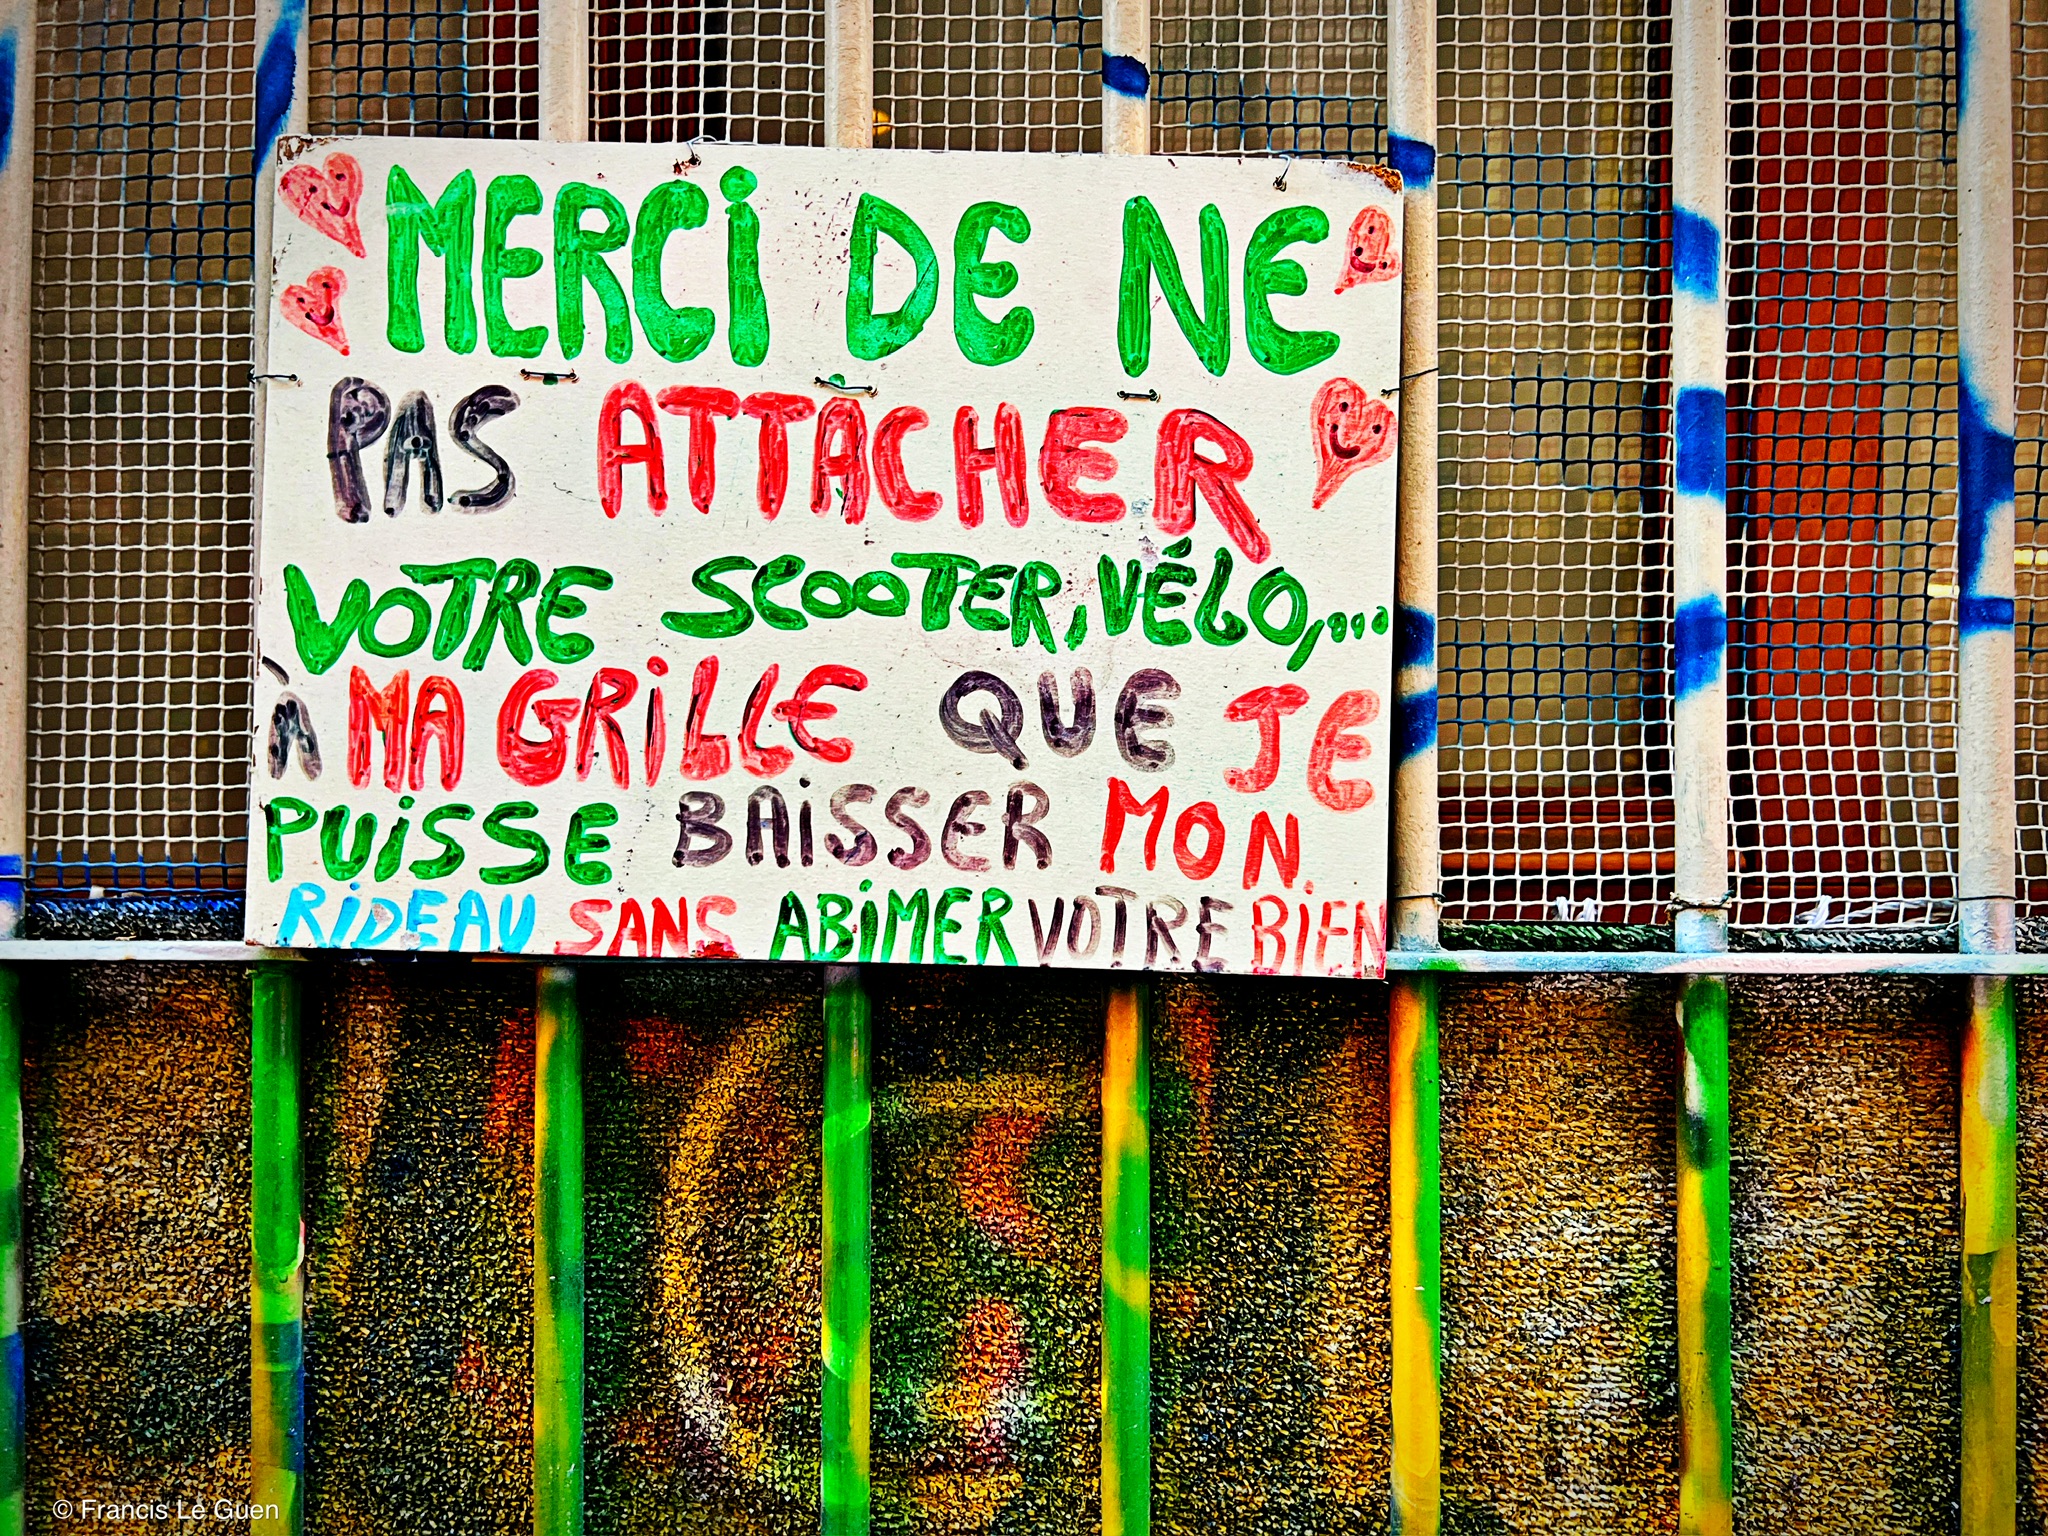 MERCi DE NE
PAS ATTACHER
VOTRE SCOOTER, VÉLO,...
À MA GRiLLE QUE JE
PUiSSE BAiSSER MON
RiDEAU SANS ABiMER VOTRE BiEN
© Francis Le Guen